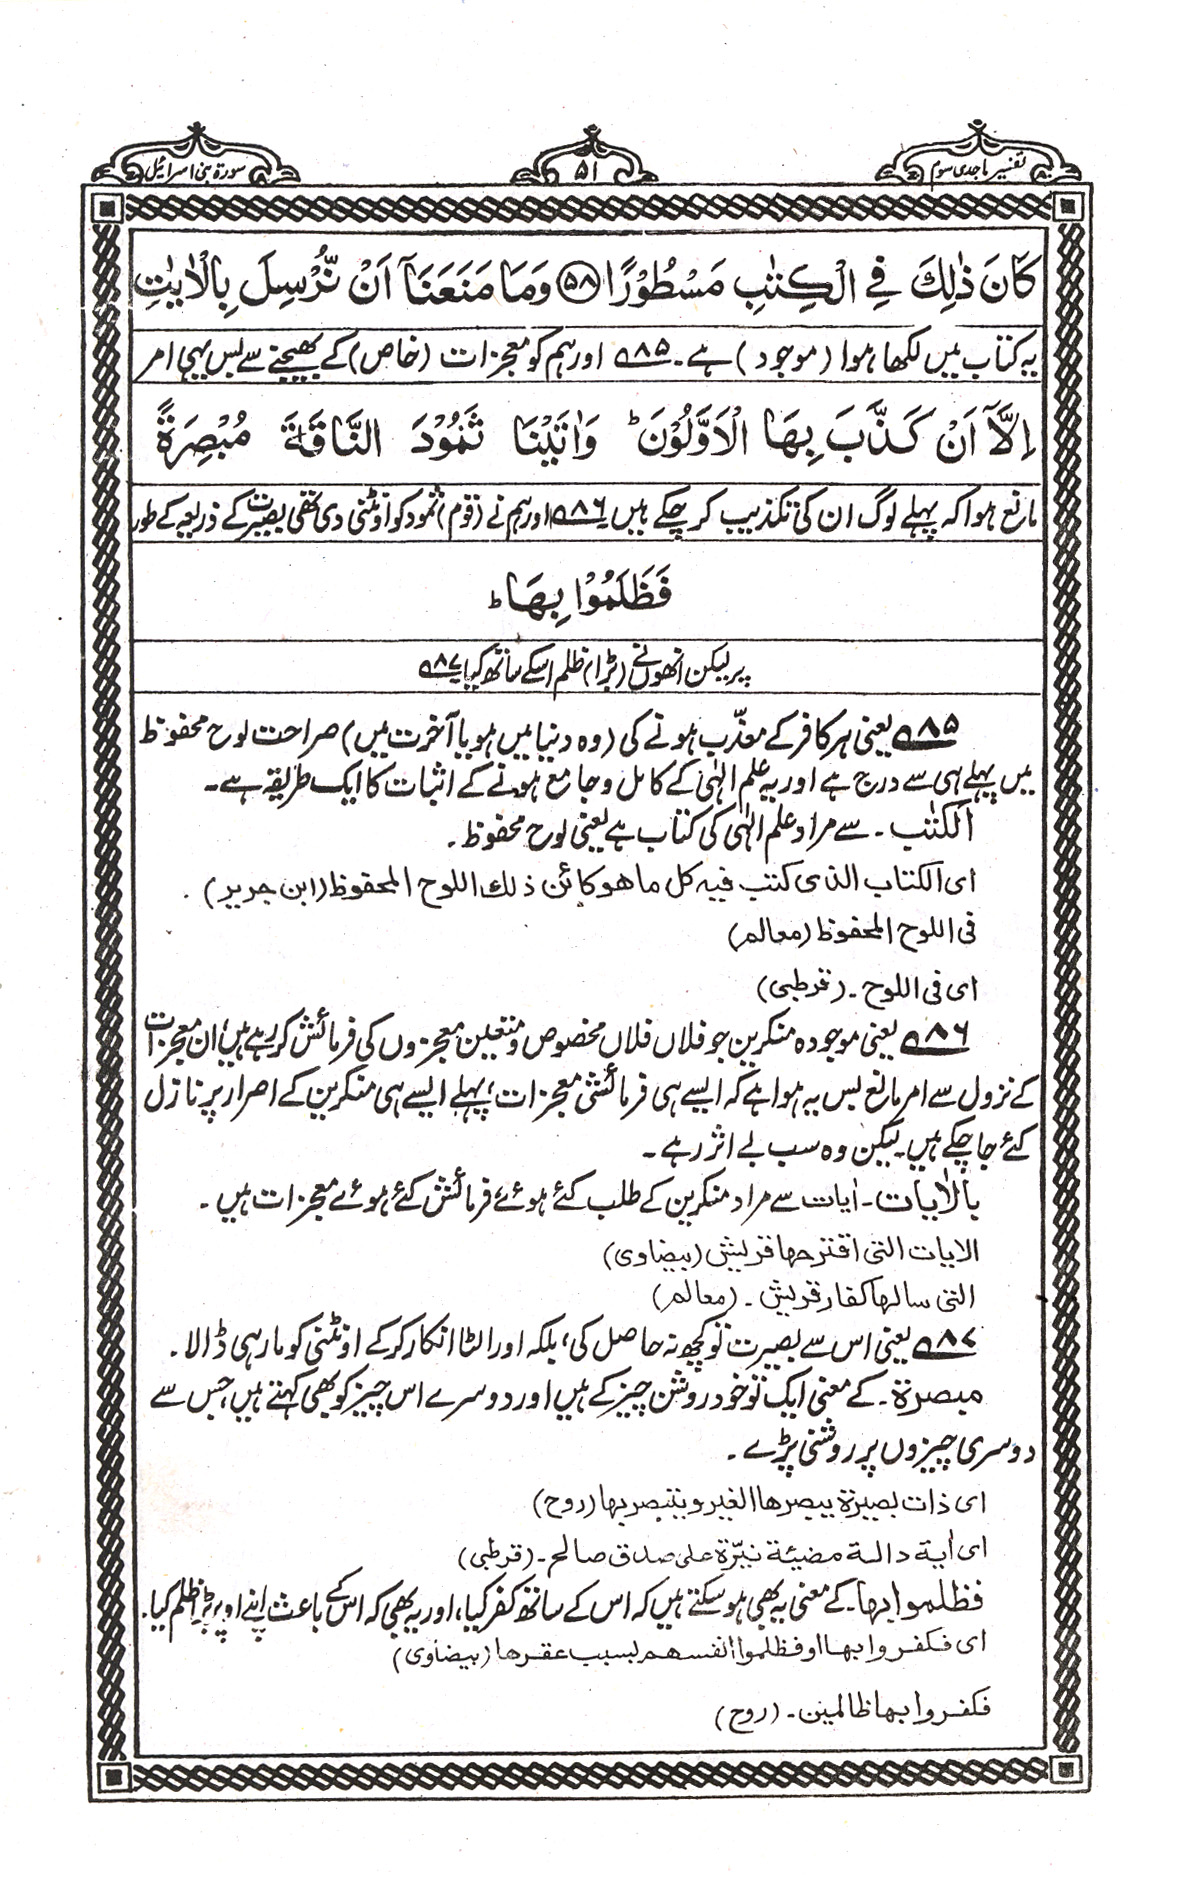 تفسیر ماجدی سوم
۵۱
سورۃ بنی اسرائیل
كَانَ ذٰلِكَ فِي الْكِتٰبِ مَسْطُوْرًا ۵۸ وَمَا مَنَعَنَآ اَنْ نُّرْسِلَ بِالْاٰيٰتِ
یہ کتاب میں لکھا ہوا (موجود) ہے۔ ۸۵ اور ہم کو معجزات (خاص) کے بھیجنے سے بس یہی امر
اِلَّآ اَنْ كَذَّبَ بِهَا الْاَوَّلُوْنَ ؕ وَاٰتَيْنَا ثَمُوْدَ النَّاقَةَ مُبْصِرَةً
مانع ہوا کہ پہلے لوگ ان کی تکذیب کر چکے ہیں ۸۶ اور ہم نے (قوم) ثمود کو اونٹنی دی تھی بصیرت کے ذریعہ کے طور
فَظَلَمُوْا بِهَا ؕ
پر لیکن انھوں نے (بڑا) ظلم اسکے ساتھ کیا ۸۷
۸۵ یعنی ہر کافر کے معذّب ہونے کی (وہ دنیا میں ہو یا آخرت میں) صراحت لوح محفوظ
میں پہلے ہی سے درج ہے اور یہ علم الٰہی کے کامل و جامع ہونے کے اثبات کا ایک طریقہ ہے۔
الکتٰب۔ سے مراد علم الٰہی کی کتاب ہے یعنی لوح محفوظ۔
ای الکتاب الذی کتب فیہ کل ما ھو کائن ذلک اللوح المحفوظ (ابن جریر)۔
فی اللوح المحفوظ (معالم)
ای فی اللوح۔ (قرطبی)
۸۶ یعنی موجودہ منکرین جو فلاں فلاں مخصوص و متعین معجزوں کی فرمائش کر رہے ہیں، ان معجزات
کے نزول سے امر مانع بس یہ ہوا ہے کہ ایسے ہی فرمائشی معجزات، پہلے ایسے ہی منکرین کے اصرار پر نازل
کئے جا چکے ہیں۔ لیکن وہ سب بے اثر رہے۔
بالاٰیات۔ اٰیات سے مراد منکرین کے طلب کئے ہوئے فرمائش کئے ہوئے معجزات ہیں۔
الایات التی اقترحھا قریش (بیضاوی)
التی سالھا کفار قریش۔ (معالم)
۸۷ یعنی اس سے بصیرت تو کچھ نہ حاصل کی، بلکہ اور الٹا انکار کر کے اونٹنی کو مار ہی ڈالا۔
مبصرۃ۔ کے معنی ایک تو خود روشن چیز کے ہیں اور دوسرے اس چیز کو بھی کہتے ہیں، جس سے
دوسری چیزوں پر روشنی پڑے۔
ای ذات بصیرۃ یبصرھا الغیر و یتبصر بھا (روح)
ای اٰیۃ دالۃ مضیئۃ نیّرۃ علی صدق صالح۔ (قرطبی)
فظلموا بھا۔ کے معنی یہ بھی ہو سکتے ہیں کہ اس کے ساتھ کفر کیا، اور یہ بھی کہ اس کے باعث اپنے اوپر بڑا ظلم کیا۔
ای فکفروا بھا او فظلموا انفسھم بسبب عقرھا (بیضاوی)
فکفروا بھا ظالمین۔ (روح)